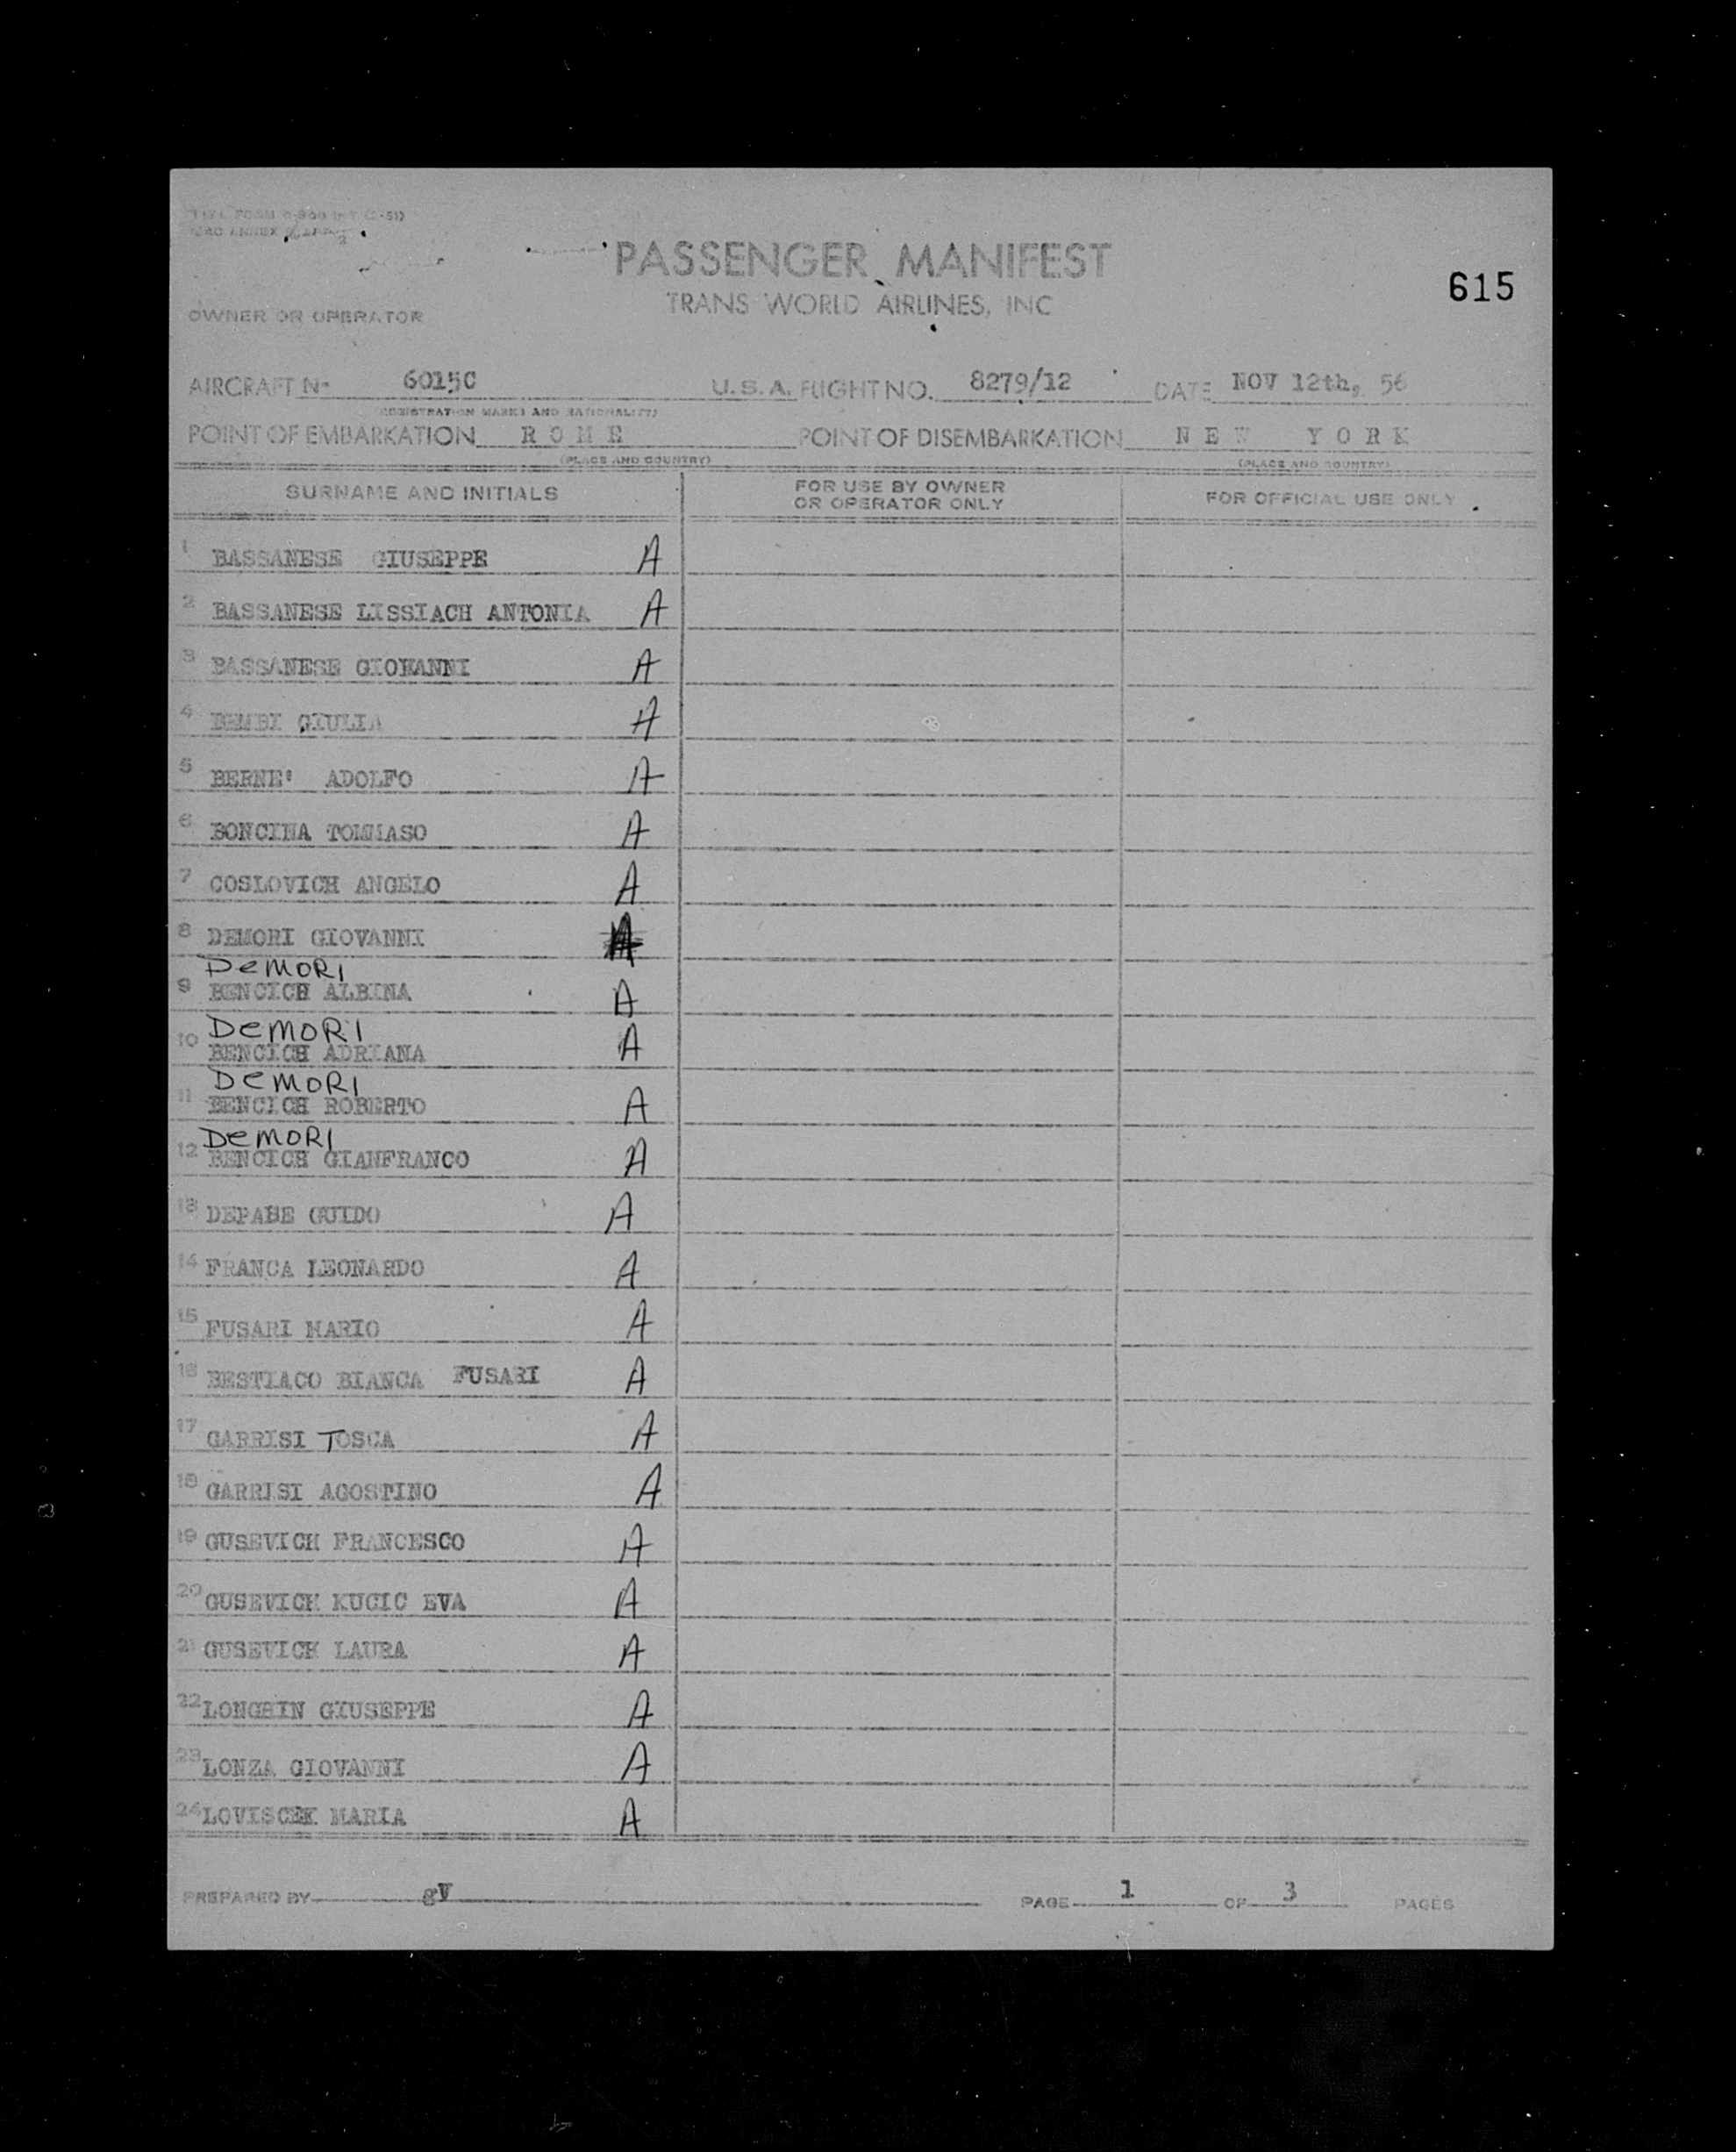 PASSENGER MANIFEST
615
TRANS WORLD AIRLINES, INC
OWNER OR OPERATOR
AIRCRAFT No 6015C U.S.A. FLIGHT NO. 8279/12 DATE NOV 12th, 56
(REGISTRATION MARKS AND NATIONALITY)
POINT OF EMBARKATION R O M E POINT OF DISEMBARKATION N E W Y O R K
(PLACE AND COUNTRY) (PLACE AND COUNTRY)
SURNAME AND INITIALS FOR USE BY OWNER OR OPERATOR ONLY FOR OFFICIAL USE ONLY
1 BASSANESE GIUSEPPE A
2 BASSANESE LISSIACH ANTONIA A
3 BASSANESE GIOVANNI A
4 BEMBI GIULIA A
5 BERNE' ADOLFO A
6 BONCINA TOMMASO A
7 COSLOVICH ANGELO A
8 DEMORI GIOVANNI A
DeMORI
9 BENCICH ALBINA A
DeMORI
10 BENCICH ADRIANA A
DeMORI
11 BENCICH ROBERTO A
DeMORI
12 BENCICH GIANFRANCO A
13 GUIDO A
14 FRANCA LEONARDO A
15 FUSARI MARIO A
16 BESTIACO BIANCA FUSARI A
17 GARRISI TOSCA A
18 GARRISI AGOSTINO A
19 GUSEVICH FRANCESCO A
20 GUSEVICH KUCIC EVA A
21 GUSEVICH LAURA A
22 GIUSEPPE A
23 LONZA GIOVANNI A
24 LOVISCEK MARIA A
PREPARED BY gV PAGE 1 OF 3 PAGES